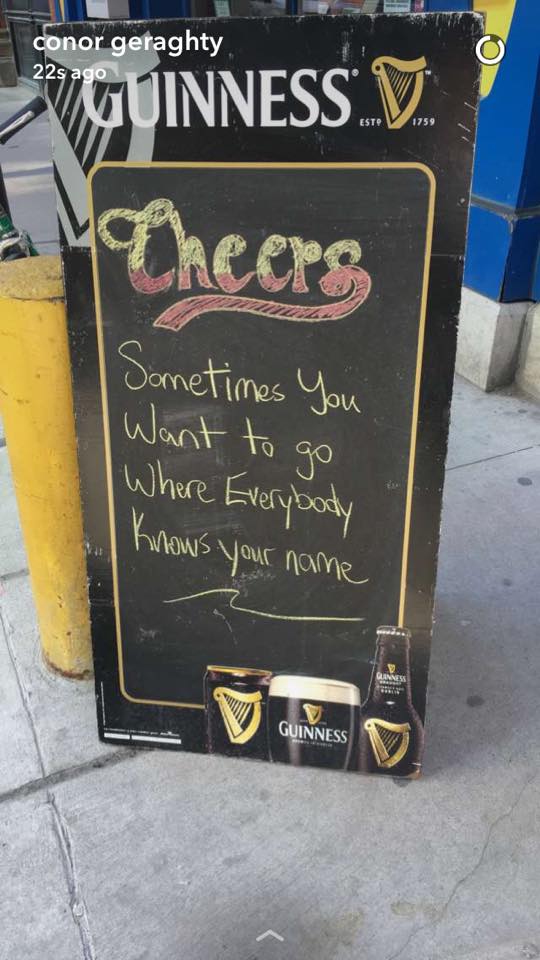 conor geraghty
22s ago
GUINNESS®
ESTD 1759
Cheers
Sometimes You
Want to go
Where Everybody
Knows your name
GUINNESS
DRAUGHT
GUINNESS